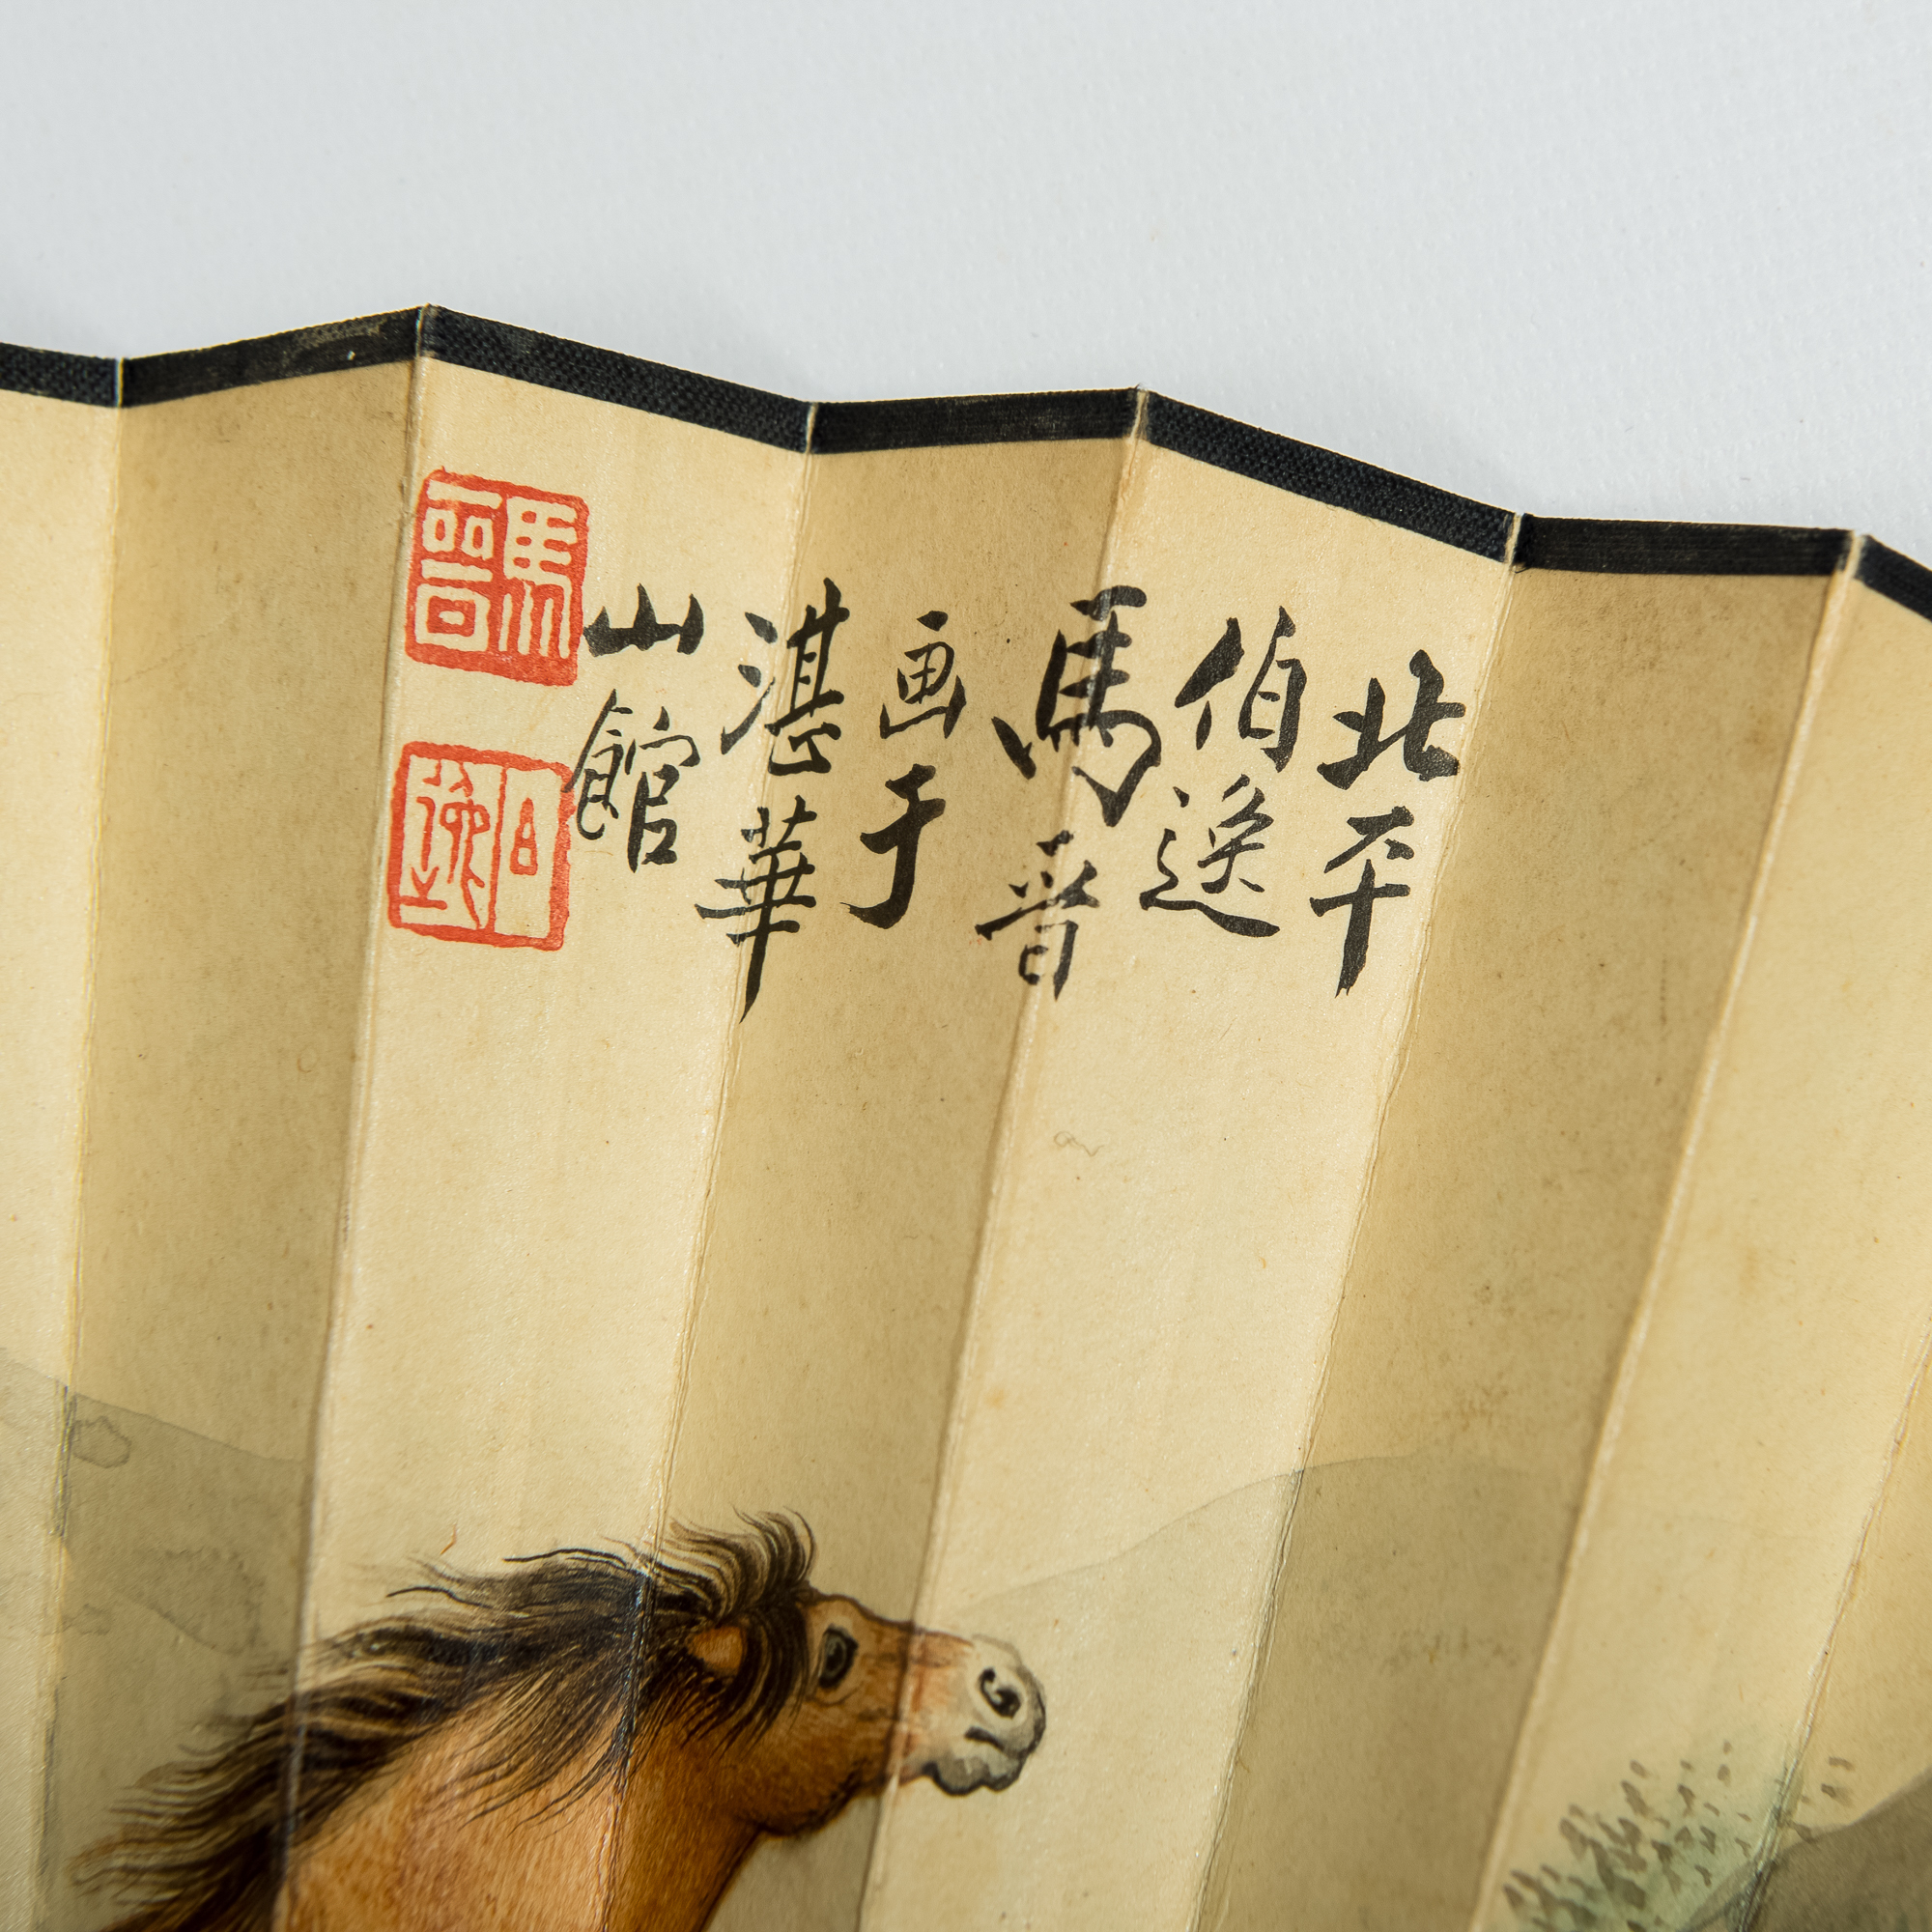 北平
伯逸
馬晋
画于
湛華
山館
馬晉
伯逸